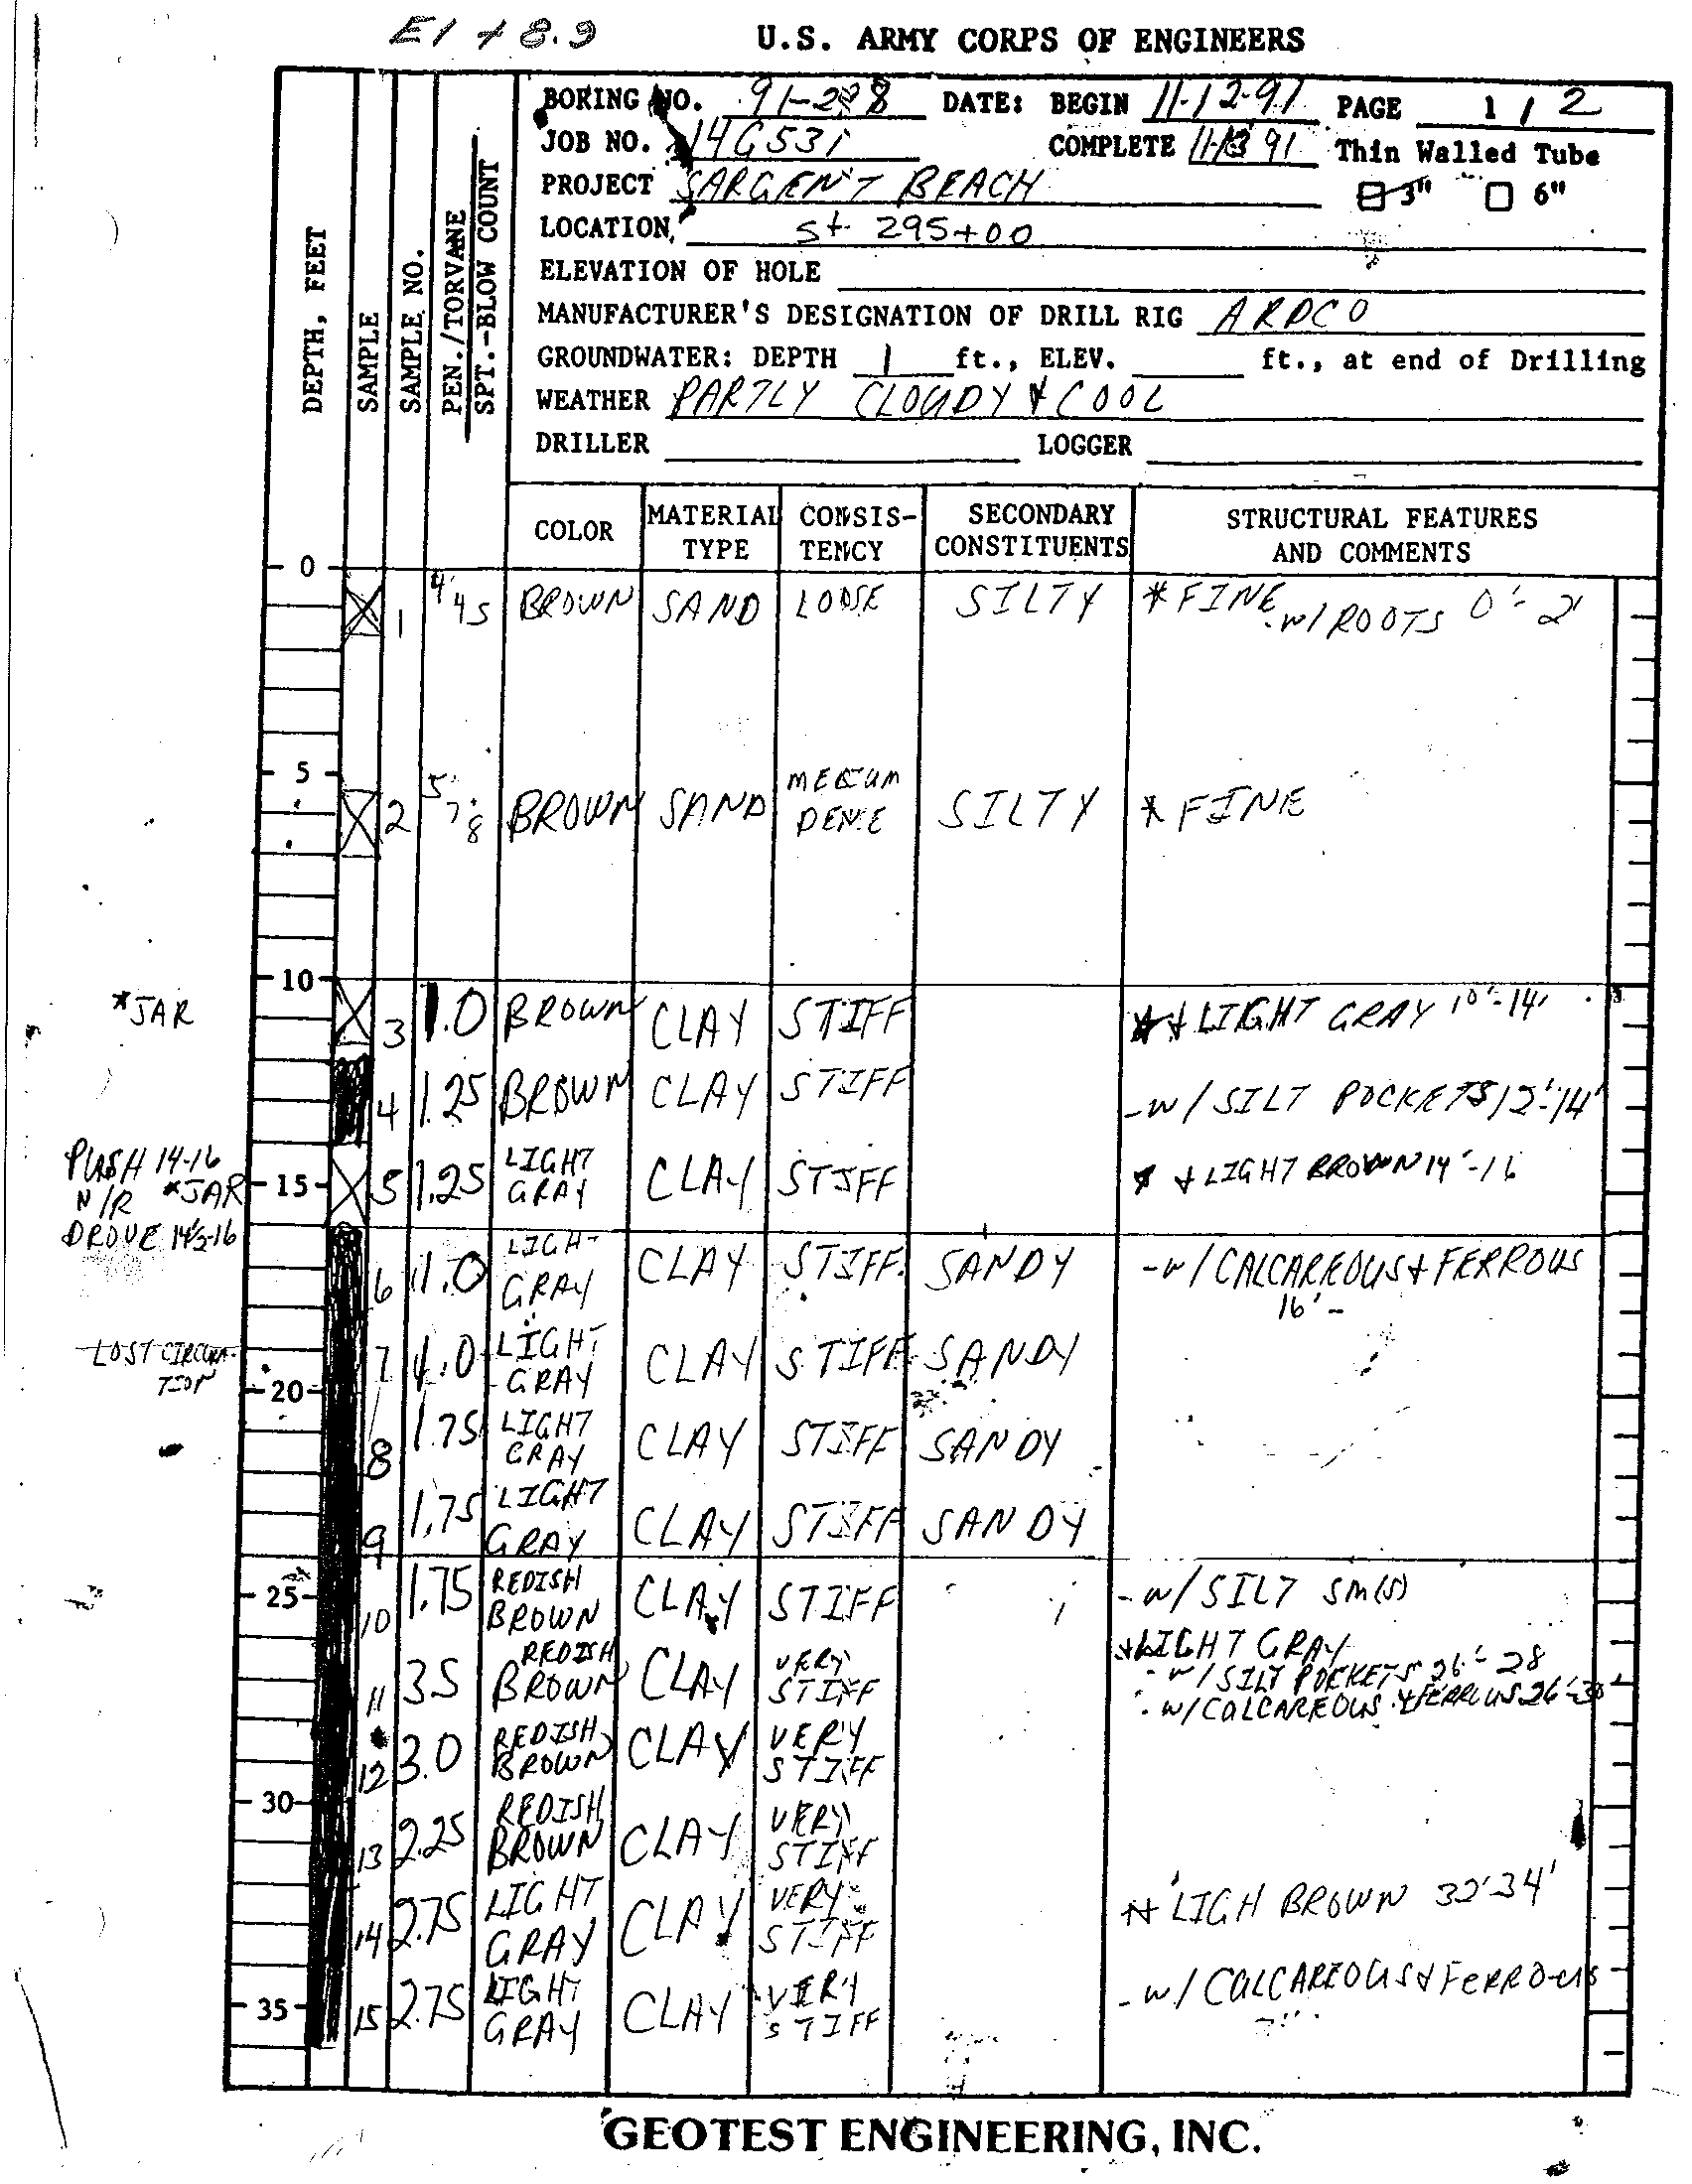 El + 8.9
U.S. ARMY CORPS OF ENGINEERS
BORING NO. 91-288 DATE: BEGIN 11-12-91 PAGE 1 / 2
JOB NO. 14G531 COMPLETE 11-13 91 Thin Walled Tube
PROJECT SARGENT BEACH 3" 6"
LOCATION, St. 295+00
ELEVATION OF HOLE
MANUFACTURER'S DESIGNATION OF DRILL RIG ARDCO
GROUNDWATER: DEPTH 1 ft., ELEV. ft., at end of Drilling
WEATHER PARTLY CLOUDY & COOL
DRILLER LOGGER
DEPTH, FEET
SAMPLE
SAMPLE NO.
PEN./TORVANE
SPT.-BLOW COUNT
COLOR MATERIAL TYPE CONSIS-TENCY SECONDARY CONSTITUENTS STRUCTURAL FEATURES AND COMMENTS
0
1 4 4 5 BROWN SAND LOOSE SILTY *FINE -w/ROOTS 0'-2'
5
2 5 7 8 BROWN SAND MEDIUM DENSE SILTY * FINE
10
*JAR 3 1.0 BROWN CLAY STIFF + LIGHT GRAY 10'-14'
4 1.25 BROWN CLAY STIFF -w/ SILT POCKETS 12'-14'
PUSH 14-16
N/R *JAR
DROVE 14½-16
15 5 1.25 LIGHT GRAY CLAY STIFF * + LIGHT BROWN 14'-16
6 1.0 LIGHT GRAY CLAY STIFF SANDY -w/CALCAREOUS + FERROUS
16'-
LOST CIRCULA-
TION
7 1.0 LIGHT GRAY CLAY STIFF SANDY
20
8 1.75 LIGHT GRAY CLAY STIFF SANDY
9 1.75 LIGHT GRAY CLAY STIFF SANDY
25
10 1.75 REDISH BROWN CLAY STIFF -w/SILT SM(S)
11 3.5 REDISH BROWN CLAY VERY STIFF +LIGHT GRAY
-w/SILT POCKETS 26'-28
-w/CALCAREOUS + FERROUS 26'-30
12 3.0 REDISH BROWN CLAY VERY STIFF
30
13 2.25 REDISH BROWN CLAY VERY STIFF
14 2.75 LIGHT GRAY CLAY VERY STIFF LIGH BROWN 32'34'
35
15 2.75 LIGHT GRAY CLAY VERY STIFF -w/CALCAREOUS + FERROUS
GEOTEST ENGINEERING, INC.